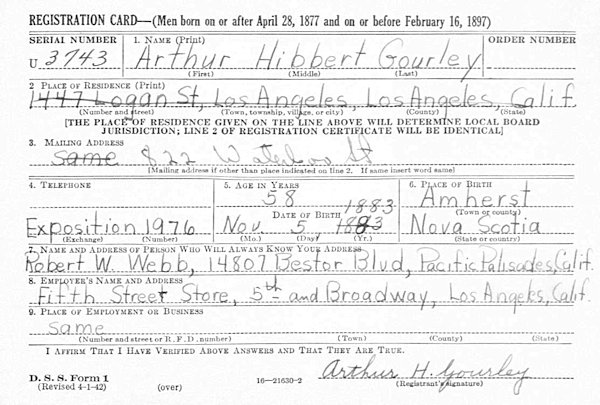 REGISTRATION CARD—(Men born on or after April 28, 1877 and on or before February 16, 1897)
SERIAL NUMBER 1. NAME (Print) ORDER NUMBER
U 3743 Arthur Hibbert Gourley
(First) (Middle) (Last)
2. PLACE OF RESIDENCE (Print)
1447 Logan St, Los Angeles, Los Angeles, Calif.
(Number and street) (Town, township, village, or city) (County) (State)
[THE PLACE OF RESIDENCE GIVEN ON THE LINE ABOVE WILL DETERMINE LOCAL BOARD
JURISDICTION; LINE 2 OF REGISTRATION CERTIFICATE WILL BE IDENTICAL]
3. MAILING ADDRESS
same 822 Waterloo St
[Mailing address if other than place indicated on line 2. If same insert word same]
4. TELEPHONE 5. AGE IN YEARS 6. PLACE OF BIRTH
58 Amherst
1883
DATE OF BIRTH (Town or county)
Exposition 1976 Nov. 5, 1883 Nova Scotia
(Exchange) (Number) (Mo.) (Day) (Yr.) (State or country)
7. NAME AND ADDRESS OF PERSON WHO WILL ALWAYS KNOW YOUR ADDRESS
Robert W. Webb, 14807 Bestor Blvd, Pacific Palisades, Calif.
8. EMPLOYER'S NAME AND ADDRESS
Fifth Street Store, 5th and Broadway, Los Angeles, Calif.
9. PLACE OF EMPLOYMENT OR BUSINESS
Same
(Number and street or R. F. D. number) (Town) (County) (State)
I AFFIRM THAT I HAVE VERIFIED ABOVE ANSWERS AND THAT THEY ARE TRUE.
Arthur H. Gourley
D. S. S. Form 1 (Registrant's signature)
(Revised 4-1-42) (over) 16—21630-2